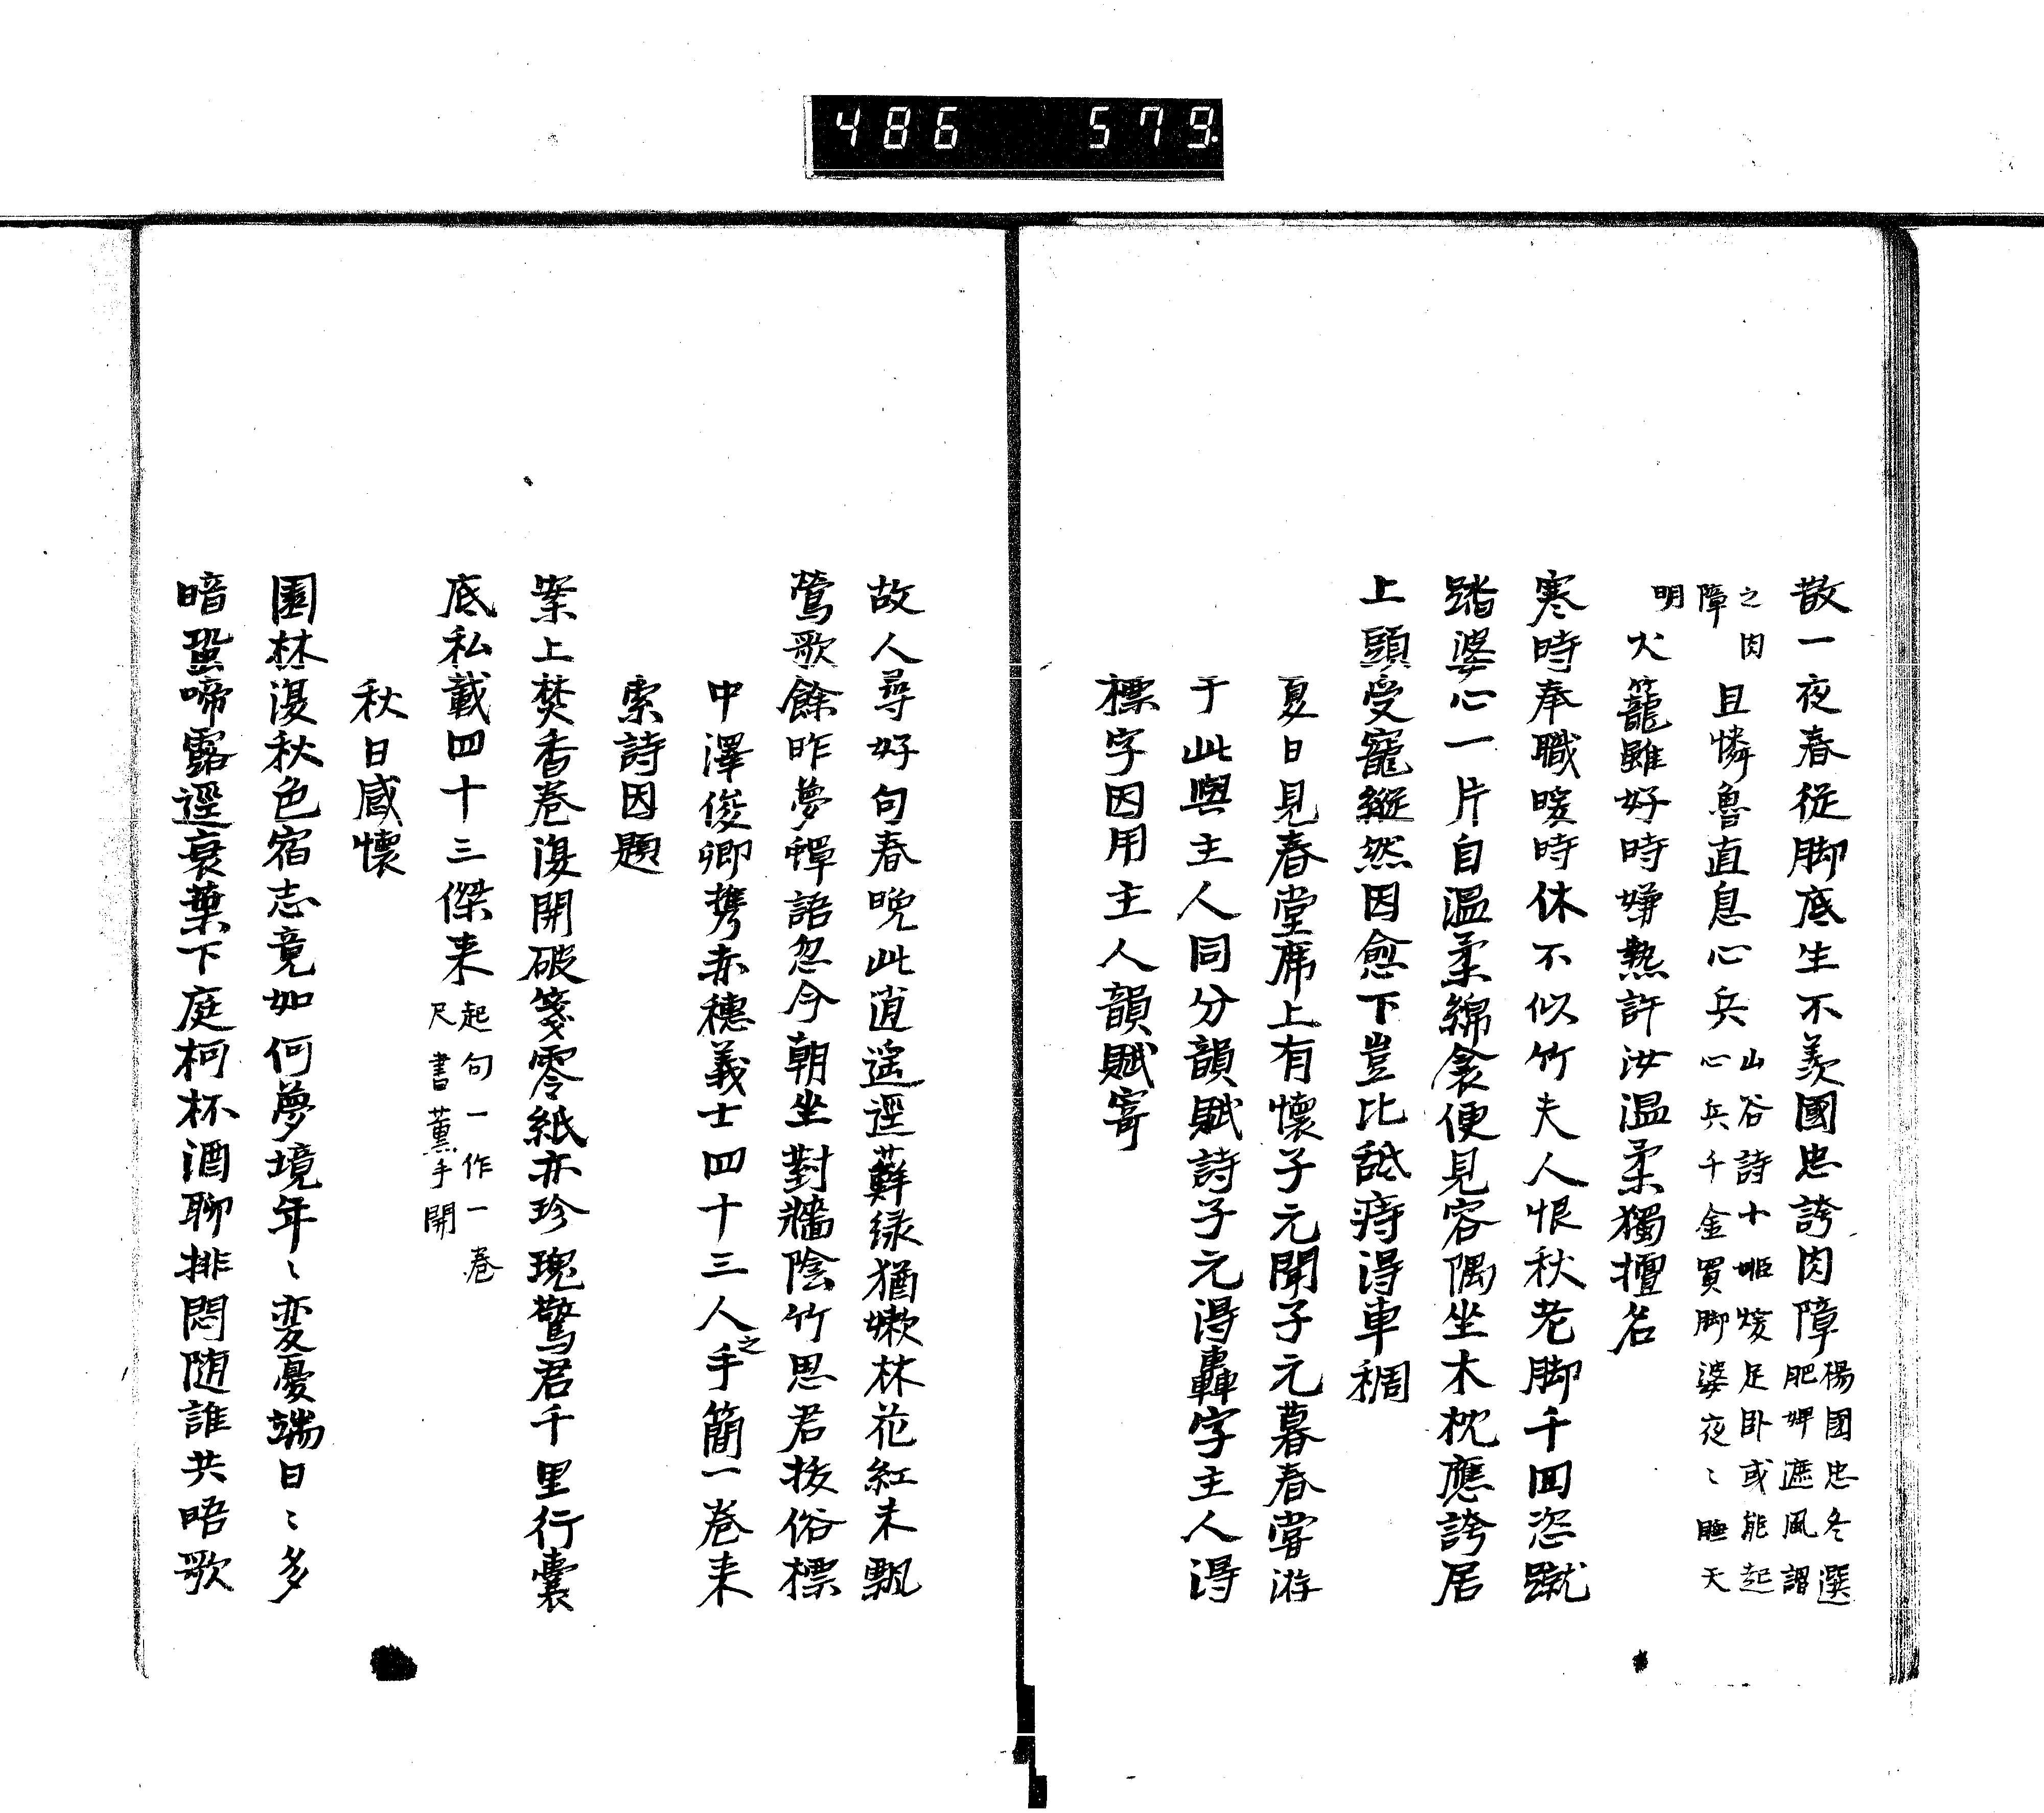 486 579
散一夜春従脚底生不羨國忠誇肉障楊國忠冬選
肥婢遮風謂
之肉
障
且憐魯直息心兵山谷詩小姬煖足卧或能起
心兵千金買脚婆夜〻睡天
明
火籠雖好時時嬾熱許汝温柔獨擅名
寒時奉職暖時休不似竹夫人恨秋老脚千回恣蹴
踏婆心一片自温柔綿衾便見容隅坐木枕應誇居
上頭受寵縦然因愈下豈比舐痔得車稠
夏日見春堂席上有懷子元聞子元暮春嘗游
于此與主人同分韻賦詩子元得轉字主人得
標字因用主人韻賦寄
故人尋好句春晩此逍遥逕蘚緑猶嫩林花紅未飄
鶯歌餘昨夢蟬語忽今朝坐對牆陰竹思君抜俗標
中澤俊卿携赤穗義士四十三人之手簡一巻来
索詩因題
案上焚香巻復開破箋零紙亦珍瑰驚君千里行囊
底私載四十三傑来起句一作一巻
尺書薫手開
秋日感懐
園林復秋色宿志竟如何夢境年〻変憂端日〻多
暗蛩啼露逕衰葉下庭柯杯酒聊排悶随誰共晤歌